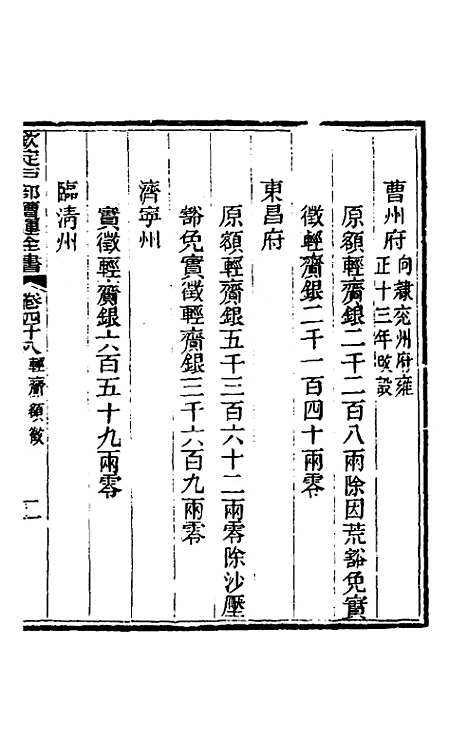 曹州府向隸兗州府雍
正十三年改設
原額輕齎銀二千二百八兩除因荒豁免實
徵輕齎銀二千一百四十兩零
東昌府
原額輕齎銀五千三百六十二兩零除沙壓
豁免實徵輕齎銀三千六百九兩零
濟寧州
實徵輕齎銀六百五十九兩零
臨清州
欽定戶部漕運全書 卷四十八 輕齎額徵 二